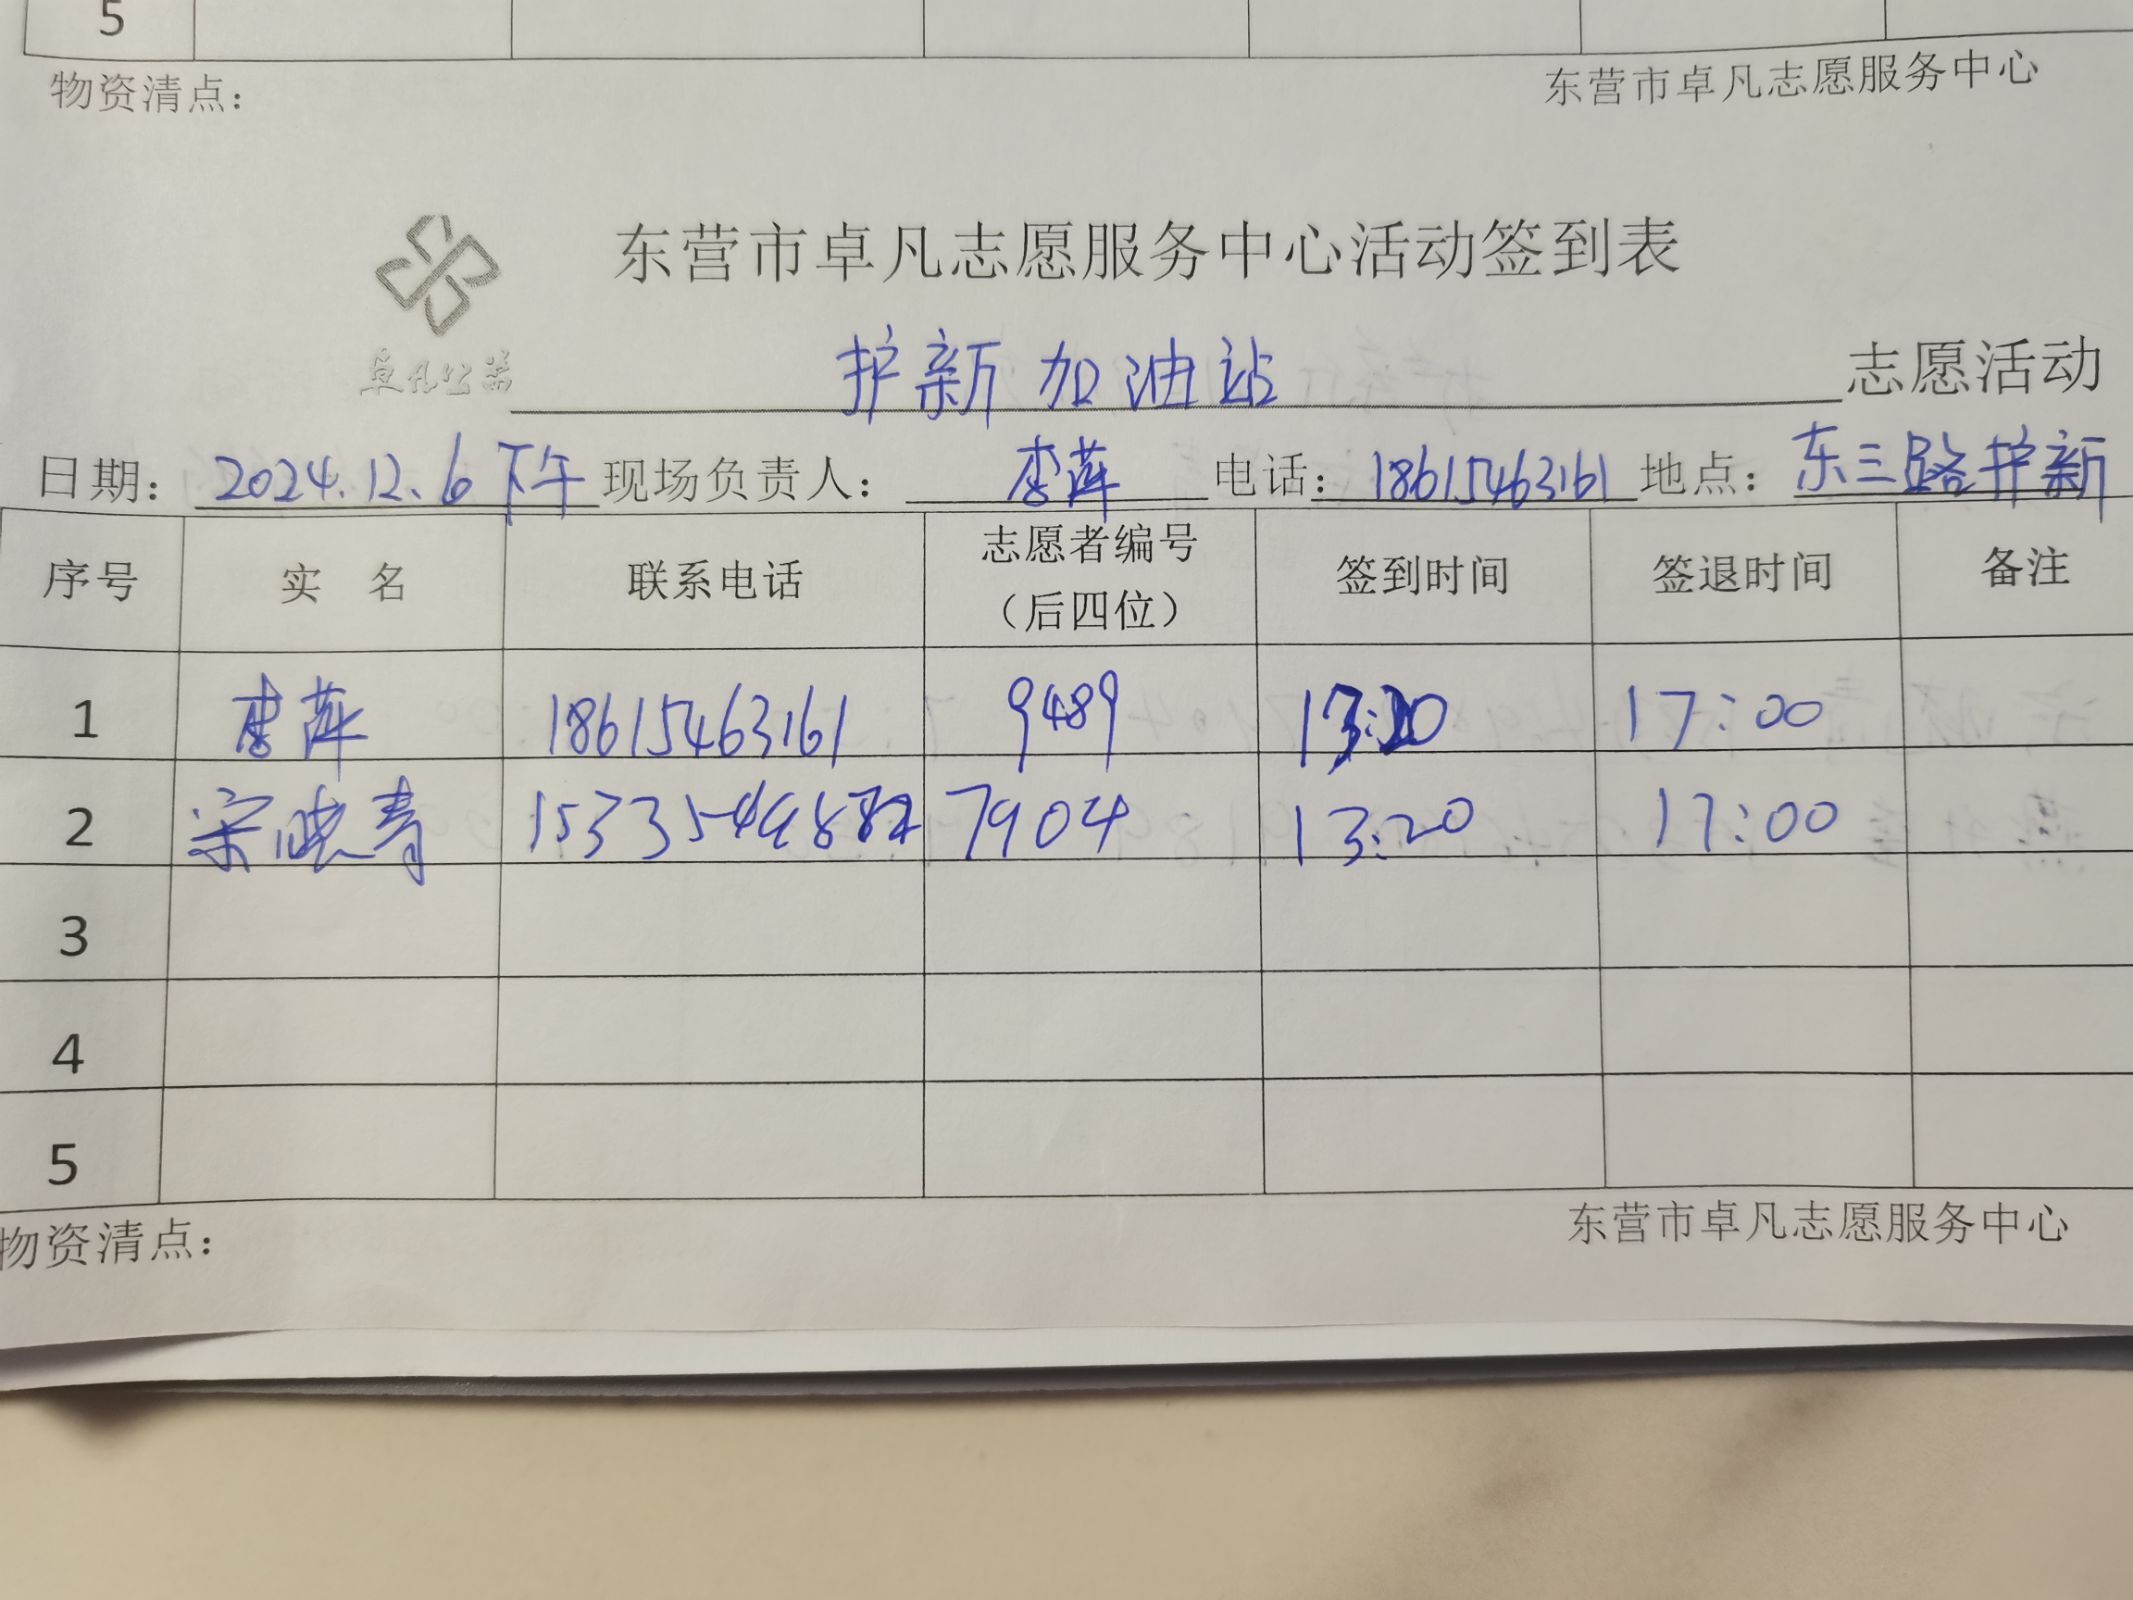 5
物资清点：
东营市卓凡志愿服务中心
东营市卓凡志愿服务中心活动签到表
卓凡公益
护新加油站 志愿活动
日期：2024.12.6下午 现场负责人：李萍 电话：18615463161 地点：东三路护新
序号 实 名 联系电话 志愿者编号（后四位） 签到时间 签退时间 备注
1 李萍 18615463161 9489 13:20 17:00
2 宋晓青 7904 13:20 17:00
3
4
5
物资清点：
东营市卓凡志愿服务中心